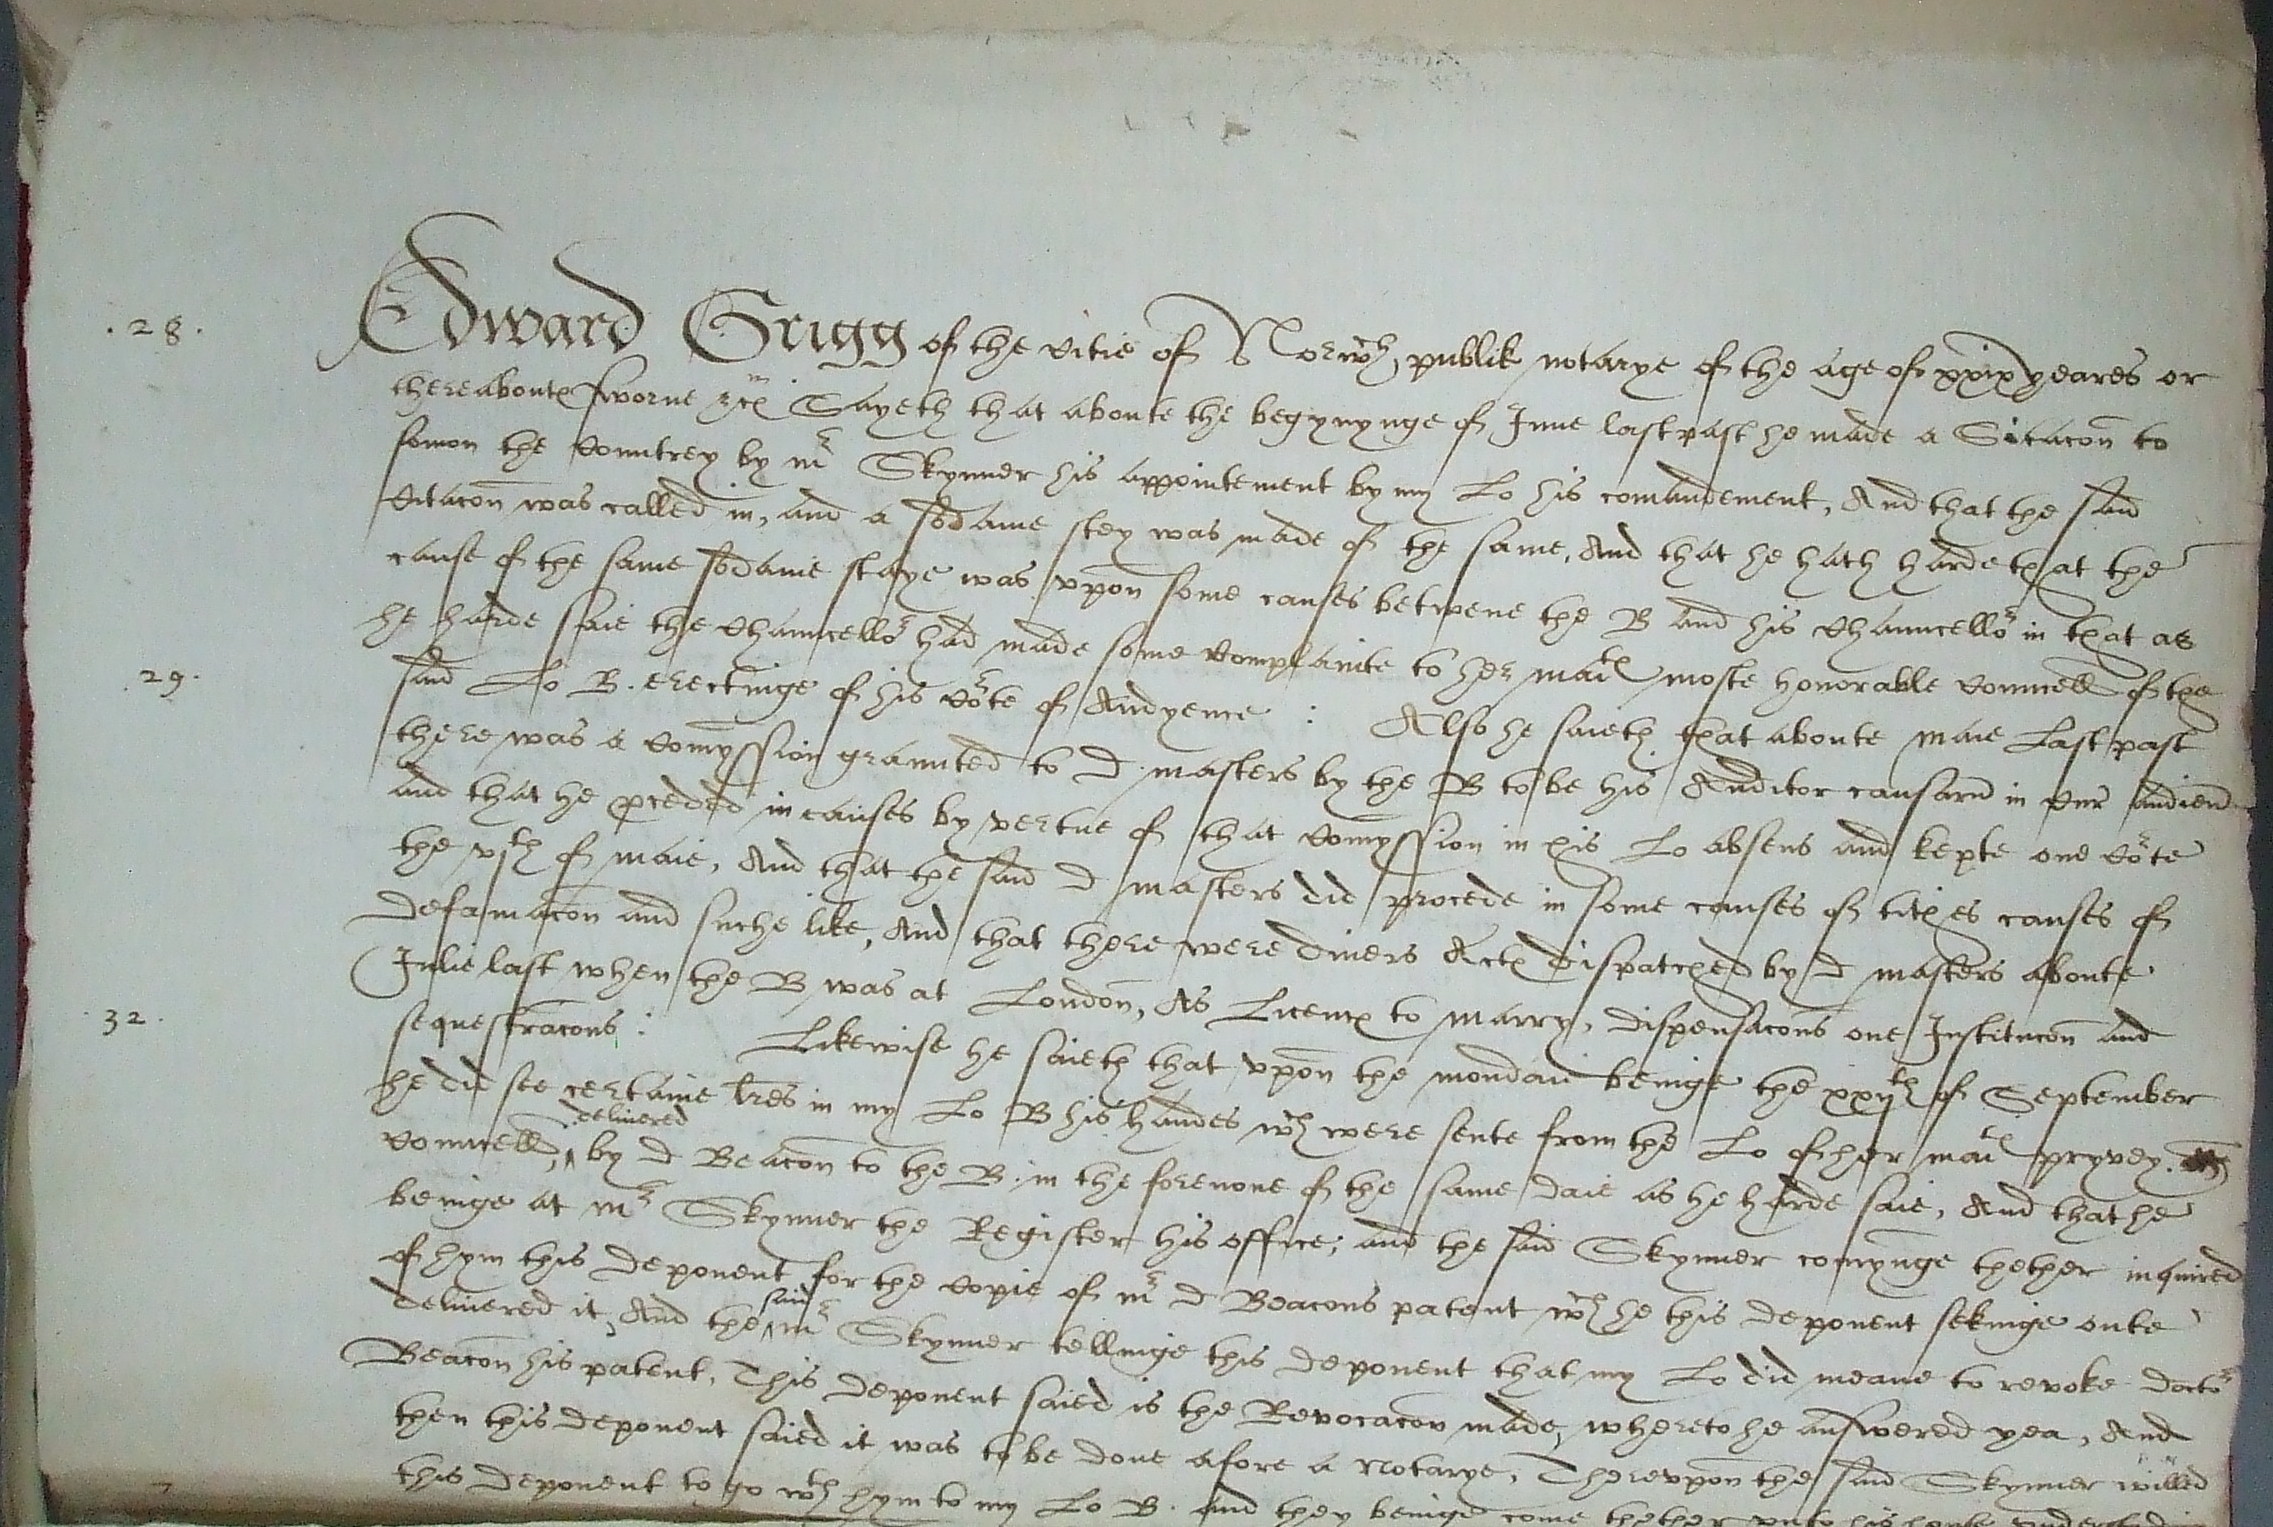 .28. Edward Grigg of the Citie of Norwch publik notarye of the age of xxix yeares or
thereaboutes sworne &c Sayeth that aboute the begynynge of June last past he made a Sitacon to
somon the Countrey by mr Skynner his appointement by my Lo his comandement, And that the said
Citacon was called in, and a sodaine stey was made of the same, And that he hath harde that the
cause of the same sodaine staye was upon some causes betwene the B and his Chauncellor in that as
he harde saie the Chauncellor had made some Complainte to her matis moste honorable Councell of the
29. said Lo B. erectinge of his Corte of Audyence : Also he saieth that aboute maie Last past
there was a Comyssion graunted to D. masters by the B to be his Auditor causarum in Cur audien
and that he pceded in causes by vertue of that Comyssion in his Lo absens and kepte one Corte
the vjth of maie, And that the said D masters did procede in some causes of tithes causes of
Defamacon and suche like, And that there were Divers Actes Dispatched by D masters aboute
Julie last when the B was at London, As Licences to marry, dispensacons one Institucon and
32. sequestracons : Likewise he saieth that upon the mondaie beinge the xxijth of September
he did see certaine lres in my Lo B his handes wch were sente from the Lo of her matis pryvey
Councell, delivered by D Beacon to the B. in the forenone of the same daie as he harde saie, And that he
beinge at mr Skynner the Register his office; and the said Skynner comynge thether inquired
of hym this Deponent for the Copie of mr D Beacons patent wch he this deponent sekinge oute
delivered it, And the said mr Skynner tellinge this deponent that my Lo did meane to revoke doctor
Beacon his patent, This deponent saied is the Revocacon made, whereto he answered yea, And
then this deponent saied it was to be done afore a Notarye, Thereupon the said Skynner willed
this deponent to go wth hym to my Lo B. and they beinge come thether